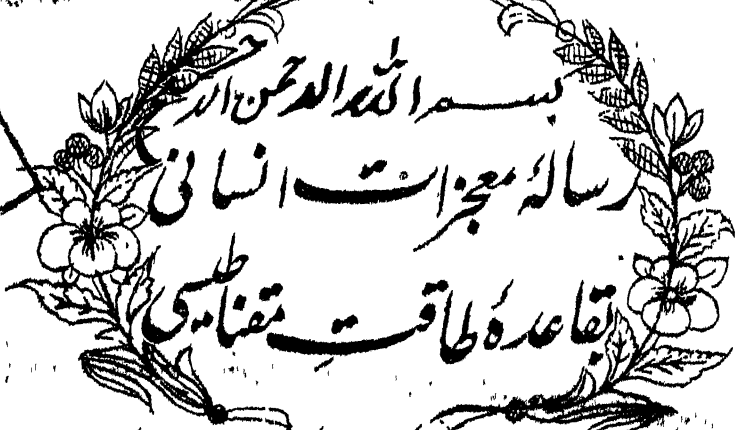 بسم اللہ الرحمن الرحیم
رسالۂ معجزات انسانی
بقاعدۂ طاقتِ مقناطیسی